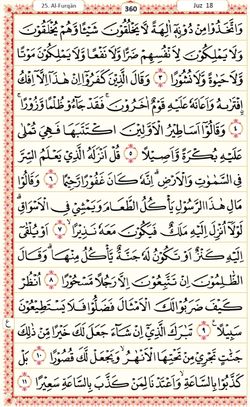 25. Al-Furqān
360
Juz 18
وَاتَّخَذُوْا مِنْ دُوْنِهٖٓ اٰلِهَةً لَّا يَخْلُقُوْنَ شَيْـًٔا وَّهُمْ يُخْلَقُوْنَ
وَلَا يَمْلِكُوْنَ لِاَنْفُسِهِمْ ضَرًّا وَّلَا نَفْعًا وَّلَا يَمْلِكُوْنَ مَوْتًا
وَّلَا حَيٰوةً وَّلَا نُشُوْرًا ٣ وَقَالَ الَّذِيْنَ كَفَرُوْٓا اِنْ هٰذَآ اِلَّآ اِفْكٌ
افْتَرٰىهُ وَاَعَانَهٗ عَلَيْهِ قَوْمٌ اٰخَرُوْنَ ۛ فَقَدْ جَآءُوْ ظُلْمًا وَّزُوْرًا
٤ وَقَالُوْٓا اَسَاطِيْرُ الْاَوَّلِيْنَ اكْتَتَبَهَا فَهِيَ تُمْلٰى
عَلَيْهِ بُكْرَةً وَّاَصِيْلًا ٥ قُلْ اَنْزَلَهُ الَّذِيْ يَعْلَمُ السِّرَّ
فِي السَّمٰوٰتِ وَالْاَرْضِ ۗ اِنَّهٗ كَانَ غَفُوْرًا رَّحِيْمًا ٦ وَقَالُوْا
مَالِ هٰذَا الرَّسُوْلِ يَأْكُلُ الطَّعَامَ وَيَمْشِيْ فِي الْاَسْوَاقِ ۗ
لَوْلَآ اُنْزِلَ اِلَيْهِ مَلَكٌ فَيَكُوْنَ مَعَهٗ نَذِيْرًا ٧ اَوْ يُلْقٰٓى
اِلَيْهِ كَنْزٌ اَوْ تَكُوْنُ لَهٗ جَنَّةٌ يَّأْكُلُ مِنْهَا ۗ وَقَالَ
الظّٰلِمُوْنَ اِنْ تَتَّبِعُوْنَ اِلَّا رَجُلًا مَّسْحُوْرًا ٨ اُنْظُرْ
كَيْفَ ضَرَبُوْا لَكَ الْاَمْثَالَ فَضَلُّوْا فَلَا يَسْتَطِيْعُوْنَ
سَبِيْلًا ٩ تَبٰرَكَ الَّذِيْٓ اِنْ شَآءَ جَعَلَ لَكَ خَيْرًا مِّنْ ذٰلِكَ
جَنّٰتٍ تَجْرِيْ مِنْ تَحْتِهَا الْاَنْهٰرُ ۙ وَيَجْعَلْ لَّكَ قُصُوْرًا ١٠ بَلْ
كَذَّبُوْا بِالسَّاعَةِ ۙ وَاَعْتَدْنَا لِمَنْ كَذَّبَ بِالسَّاعَةِ سَعِيْرًا ١١
ع